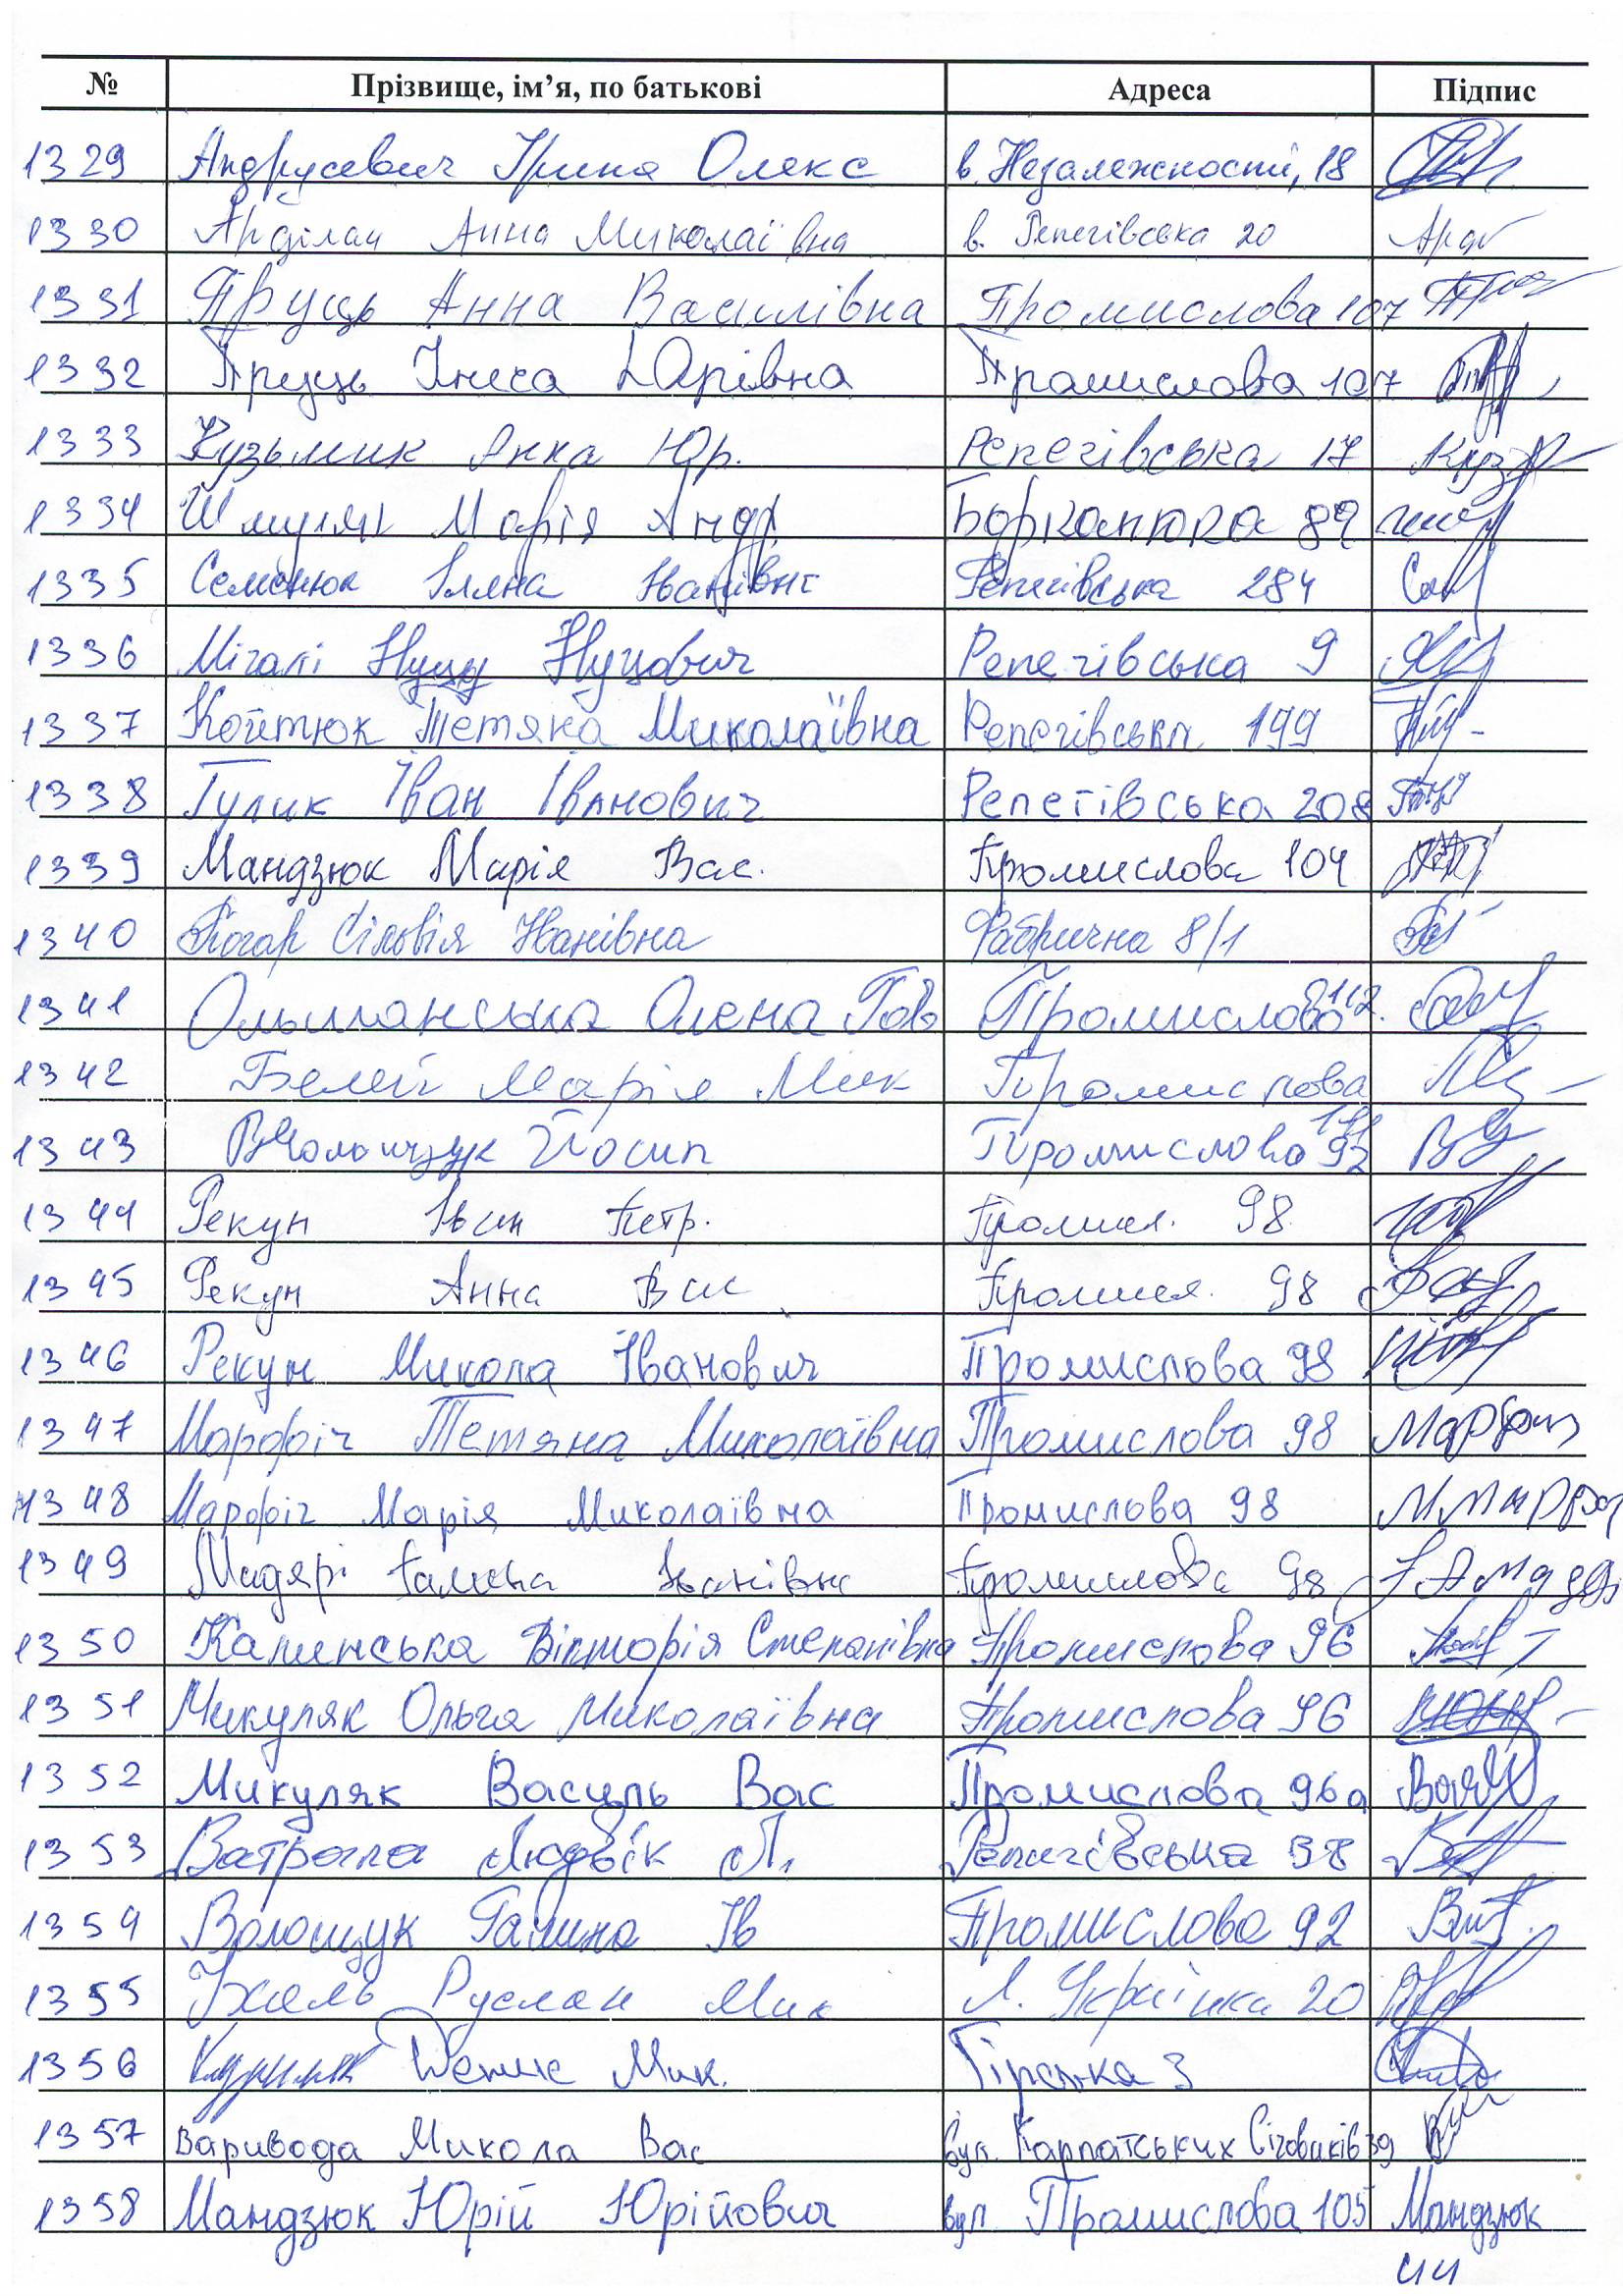 № Прізвище, ім’я, по батькові Адреса Підпис
1329 Андрусевич Ірина Олекс в. Незалежності, 18
1330 Арділан Анна Миколаївна в. Репегівська 20 Ард
1331 Пруць Анна Василівна Промислова 107
1332 Пруць Інеса Юрівна Промислова 107
1333 Кузьмик Анна Юр. Репегівська 17
1334 Марія Андр Борканюка 89
1335 Семенюк Іляна Іванівна Репегівська 284
1336 Мігалі Нуцу Нуцович Репегівська 9
1337 Койтюк Тетяна Миколаївна Репегівська 199
1338 Гулик Іван Іванович Репегівська 208
1339 Мандзюк Марія Вас. Промислова 104
1340 Сільвія Іванівна Фабрична 8/1
1341 Ольшанська Олена Промислова 112
1342 Белей Марія Мик Промислова 111
1343 Йосип Промислова 92
1344 Рекун Іван Петр. Промисл. 98
1345 Рекун Анна Вас Промисл. 98
1346 Рекун Микола Іванович Промислова 98
1347 Марфіч Тетяна Миколаївна Промислова 98
1348 Марфіч Марія Миколаївна Промислова 98
1349 Мадярі Галина Іванівна Промислова 98
1350 Калинська Вікторія Степанівна Промислова 96
1351 Микуляк Ольга Миколаївна Промислова 96
1352 Микуляк Василь Вас Промислова 96а
1353 Людвік Репегівська 38
1354 Волощук Галина Ів Промислова 92
1355 Руслан Мик Л. Українки 20
1356 Денис Мик. Гірська 3
1357 Варивода Микола Вас вул. Карпатських Січовиків 39
1358 Мандзюк Юрій Юрійович вул. Промислова 105 Мандзюк
44